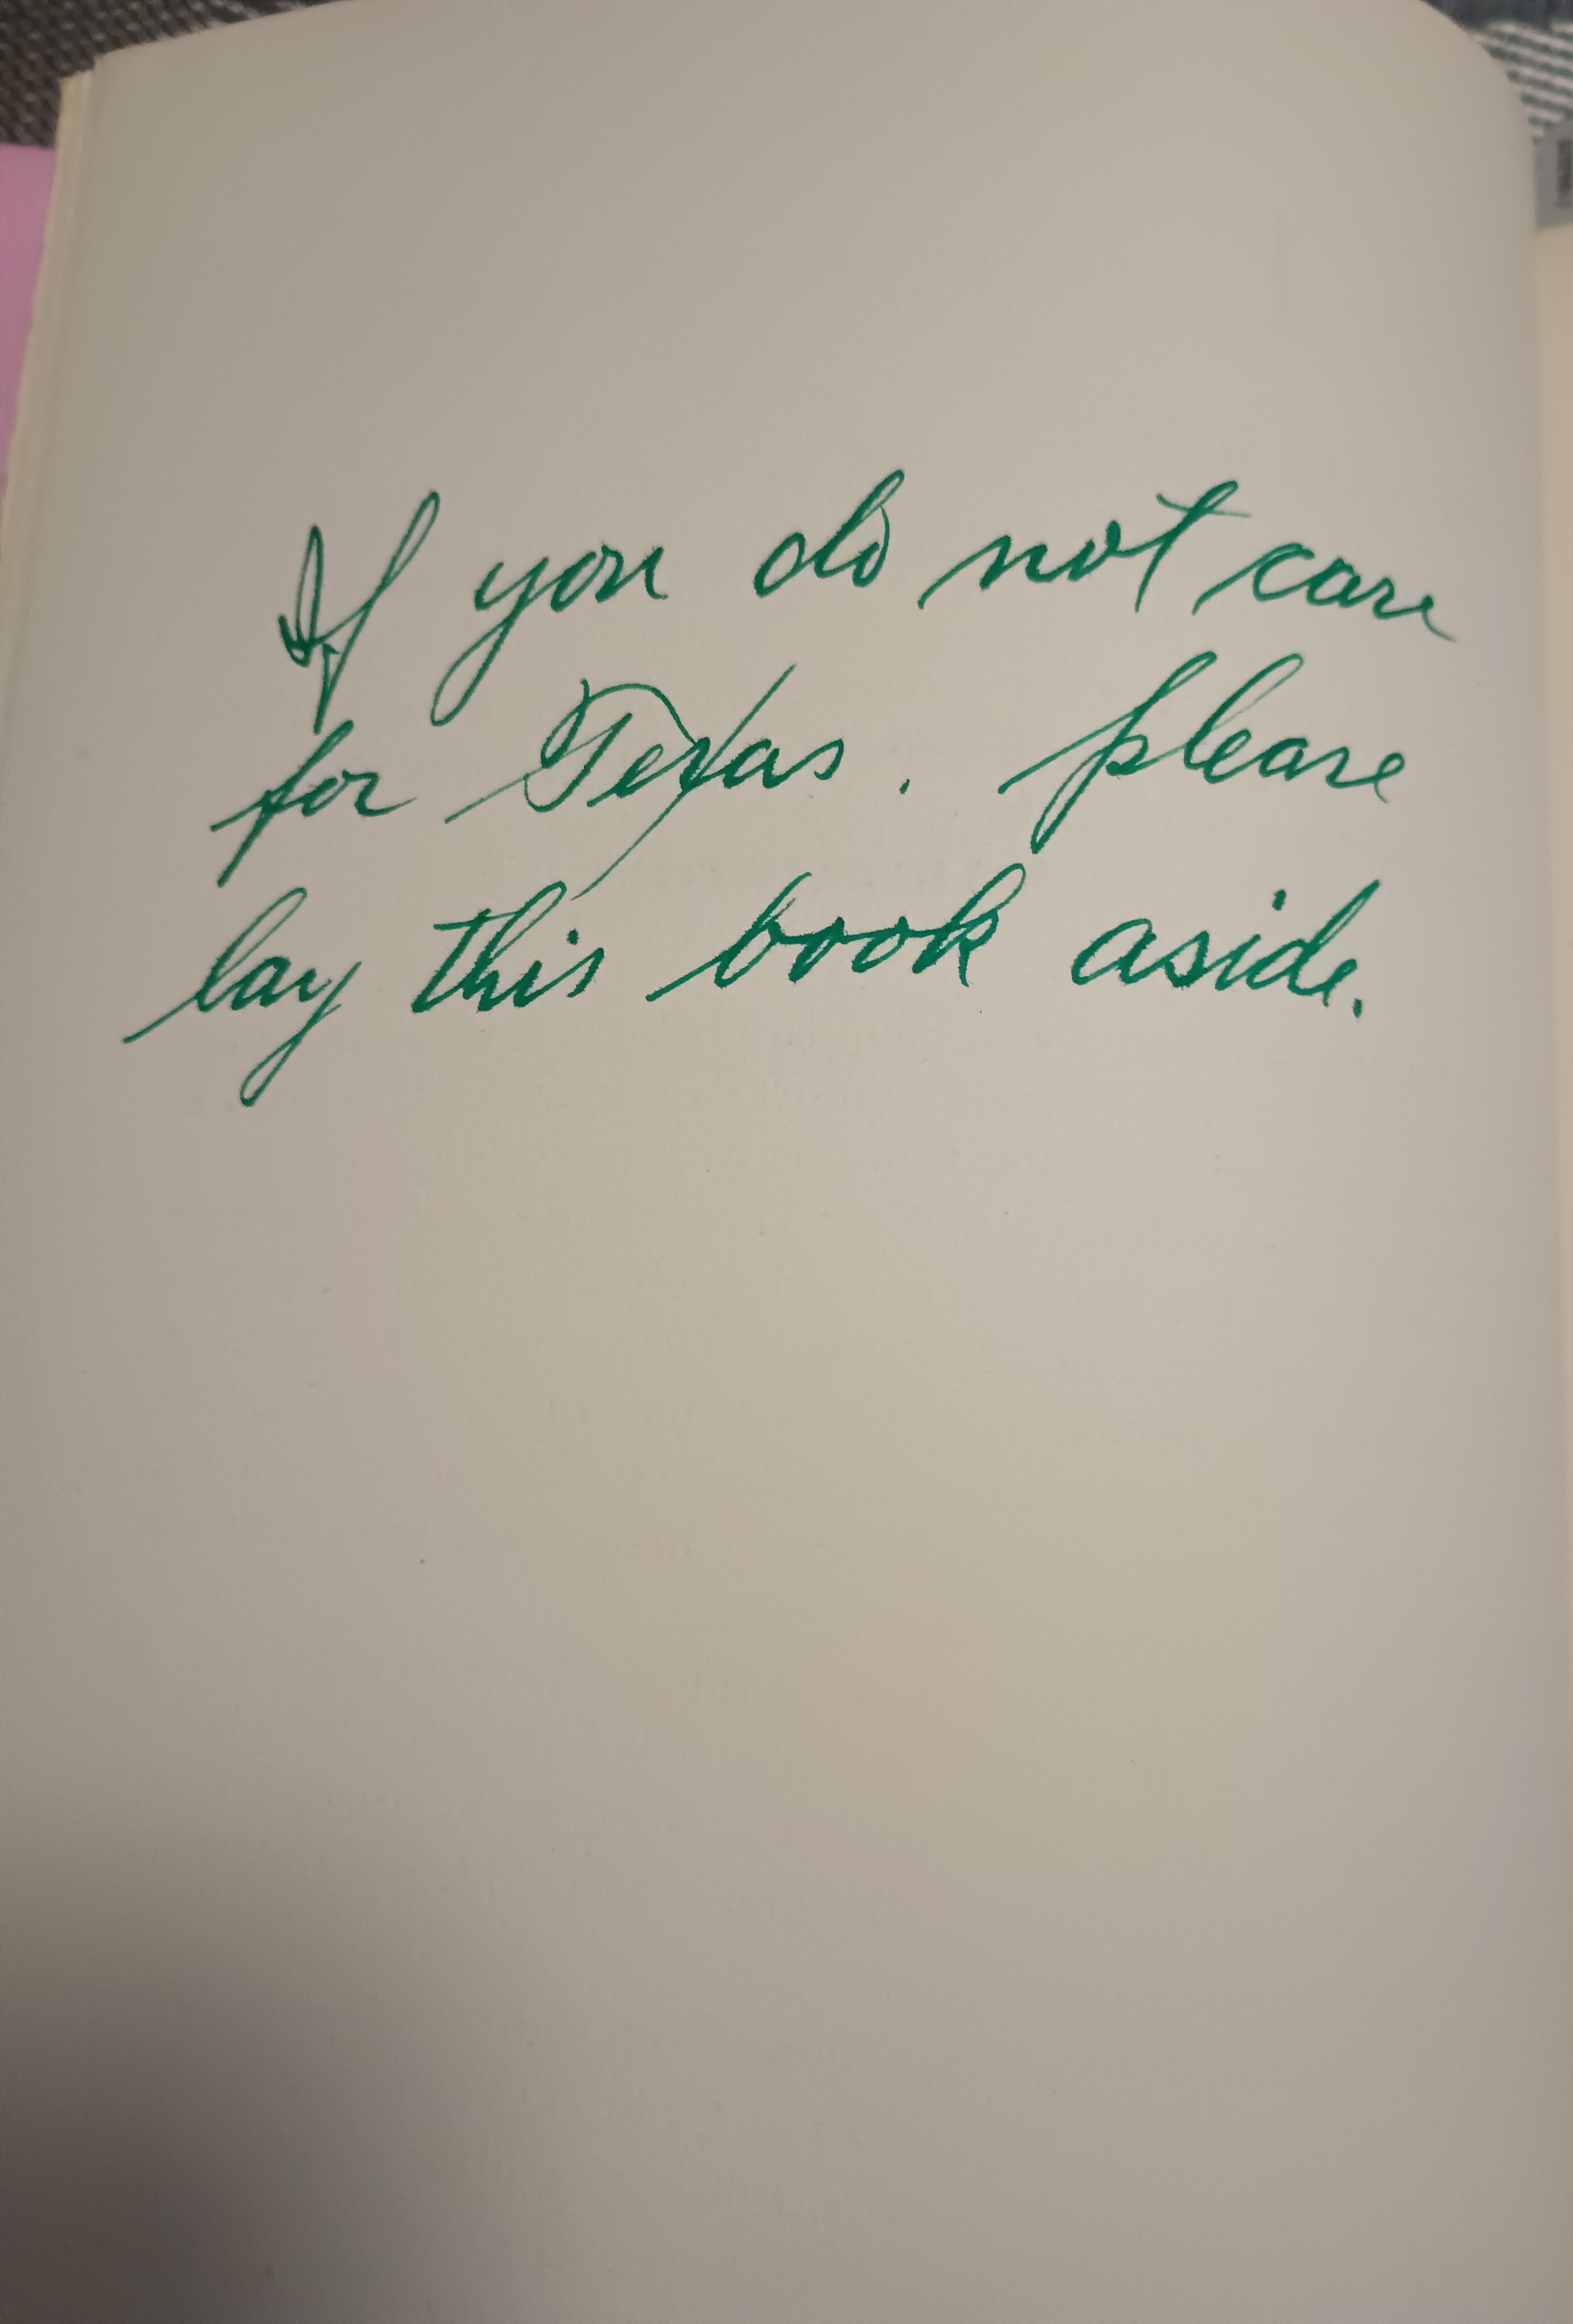 If you do not care
for Texas. please
lay this book aside.